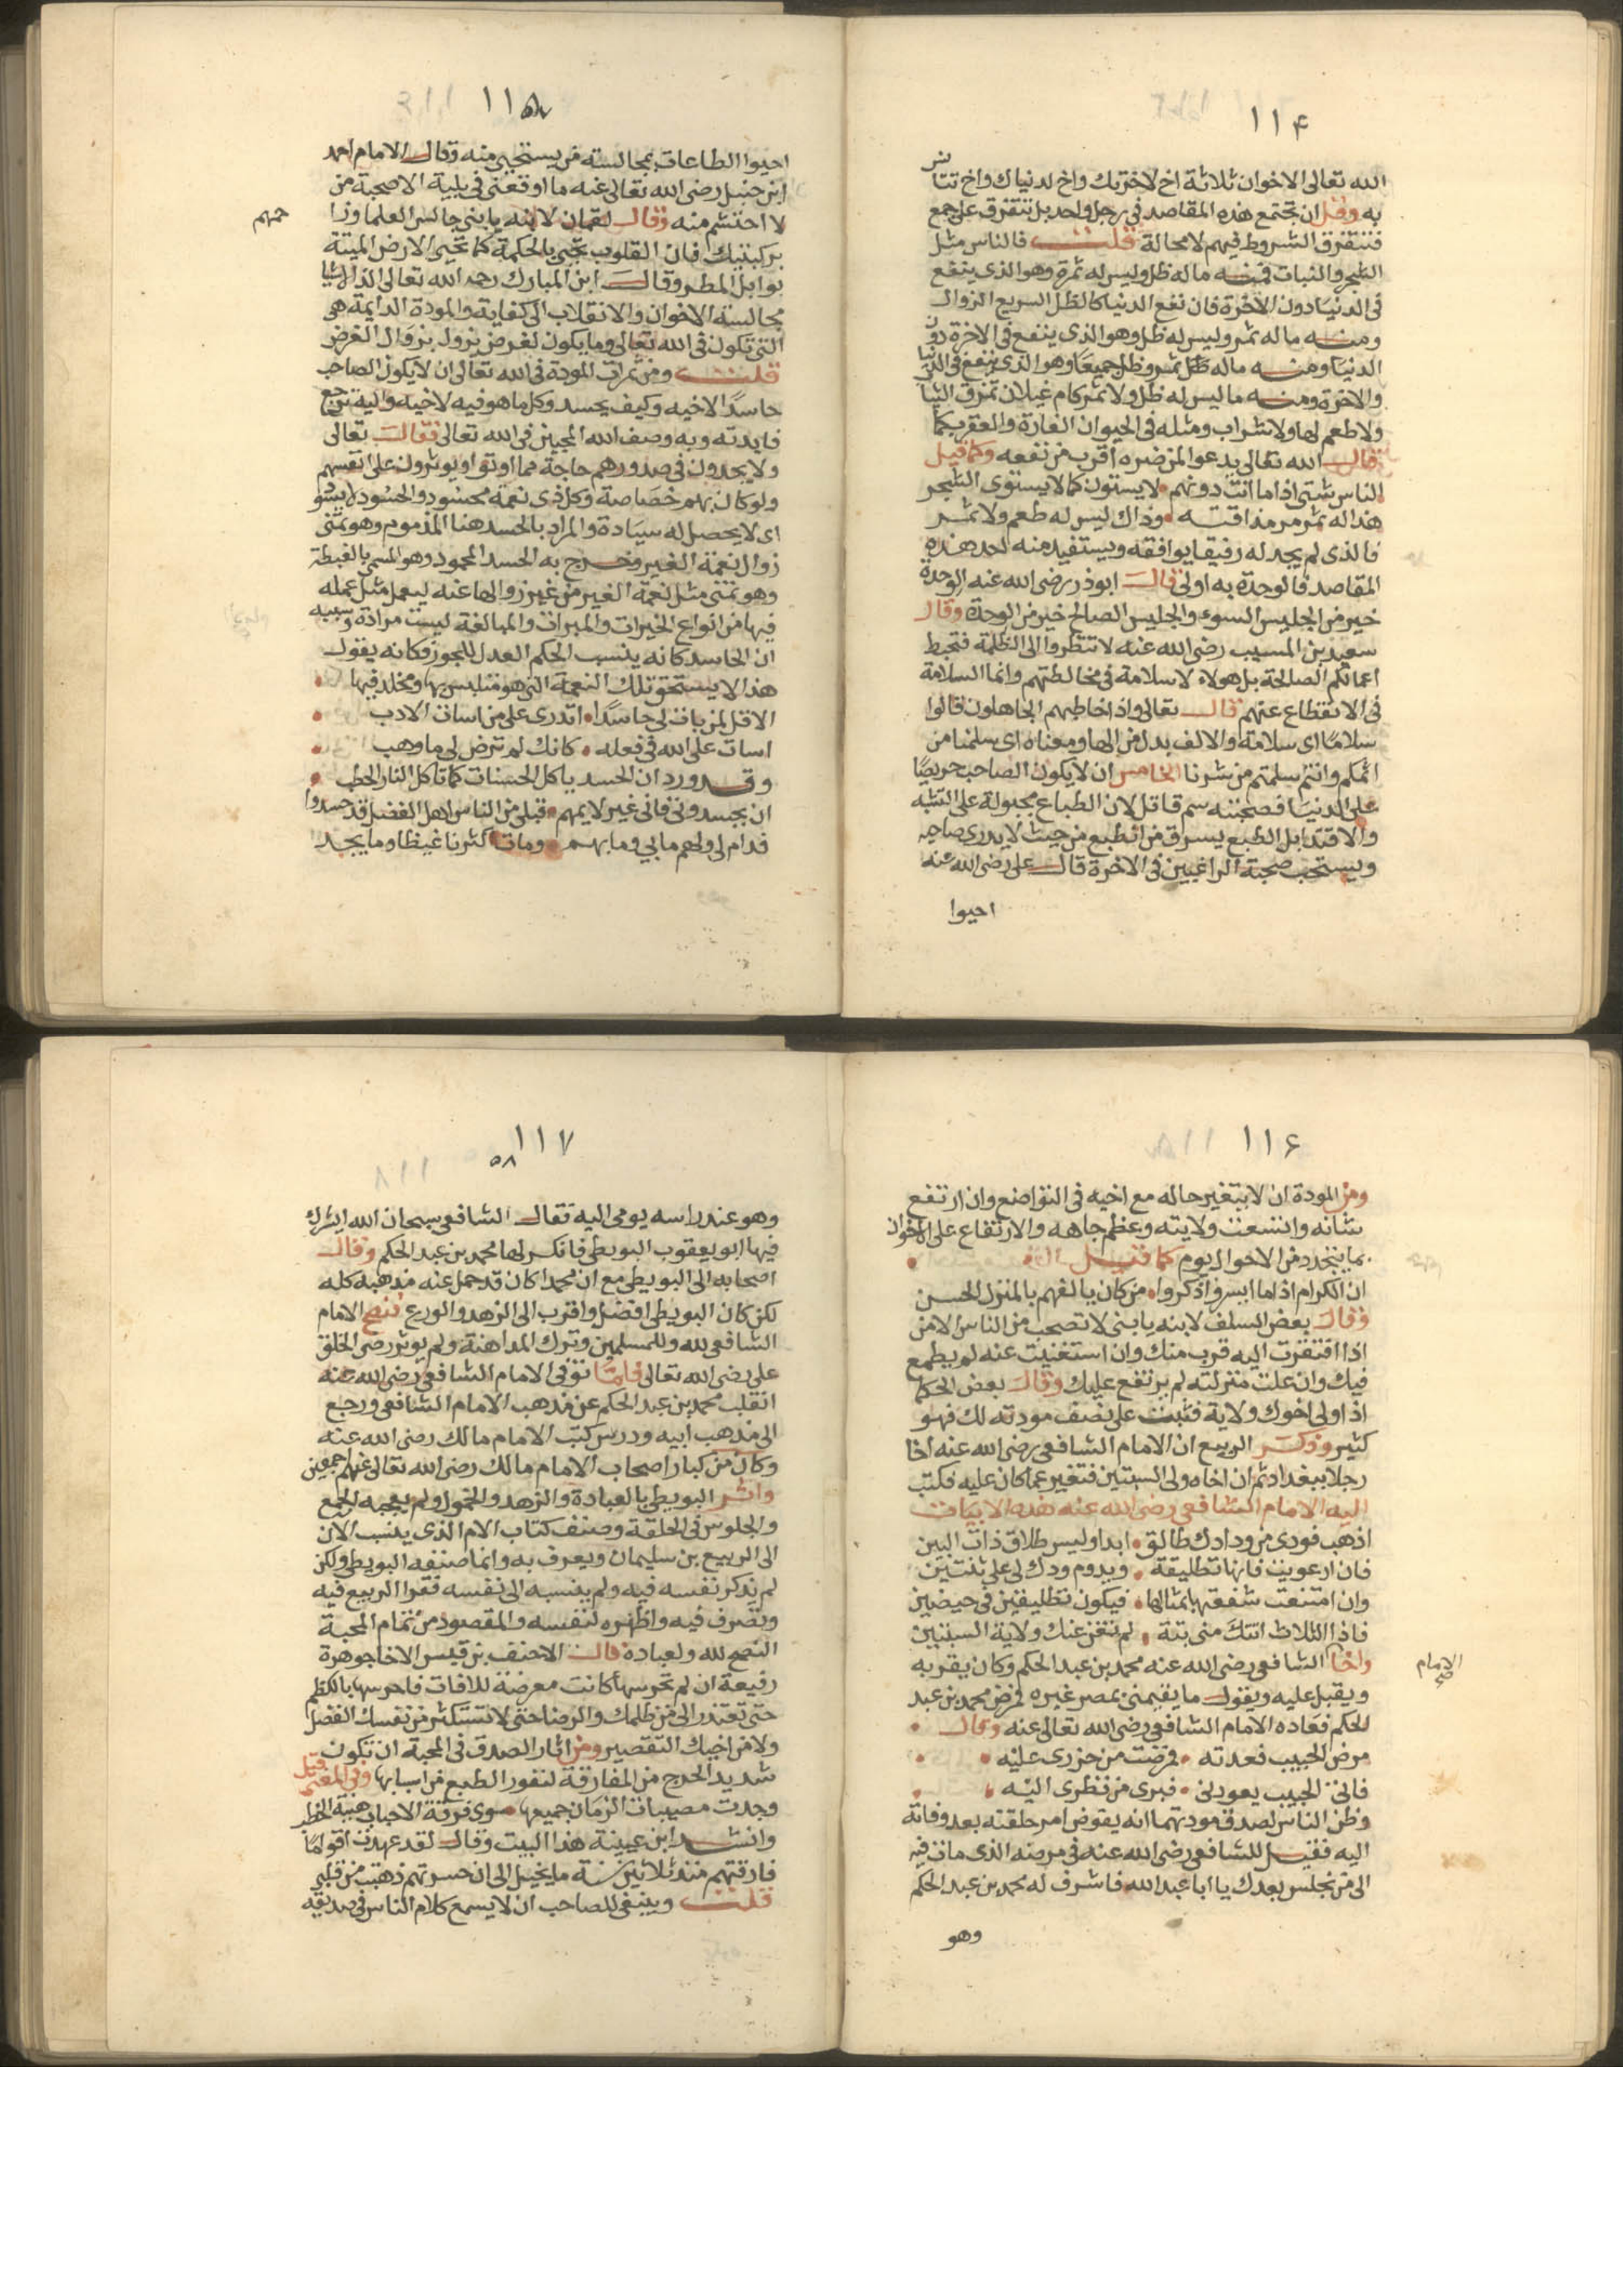 ١١٤
الله تعالى الاخوان ثلاثة اخ لاخرتك واخ لدنياك واخ تتانس
به وقل ان تجتمع هذه المقاصد في رجل واحد بل تتفرق على جمع
فتتفرق الشروط فيهم لا محالة قلت فالناس مثل
الشجر والنبات فمنه ماله ظل وليس له ثمرة وهو الذي ينفع
في الدنيا دون الاخرة فان نفع الدنيا كالظل السريع الزوال
ومنه ماله ثمر وليس له ظل وهو الذي ينفع في الاخرة دون
الدنيا ومنه ماله ثمر وظل جميعا وهو الذي ينفع في الدنيا
والاخرة ومنه ما ليس له ظل ولا ثمر كام غيلان تمزق الثياب
ولا طعم لها ولا شراب ومثله في الحيوان الفارة والعقرب كما
قال الله تعالى يدعوا لمن ضره اقرب من نفعه وكما قيل
الناس شتى اذا ما انت دونهم لا يستون كما لا يستوي الشجر
هذا له ثمر مر مذاقته وذاك ليس له طعم ولا ثمر
فالذي لم يجد له رفيقا يوافقه ويستفيد منه احد هذه
المقاصد فالوحدة به اولى قال ابو ذر رضي الله عنه الوحدة
خير من الجليس السوء والجليس الصالح خير من الوحدة وقال
سعيد بن المسيب رضي الله عنه لا تنظروا الى الظلمة فتحبط
اعمالكم الصالحة بل هولاء لا سلامة في مخالطتهم وانما السلامة
في الانقطاع عنهم قال تعالى واذا خاطبهم الجاهلون قالوا
سلاما اي سلامة والالف بدل من الها ومعناه اي سلمنا من
اثمكم وانتم سلمتم من شرنا الخامس ان لا يكون الصاحب حريصا
على الدنيا فصحبته سم قاتل لان الطباع مجبولة على التشبه
والاقتدا بل الطبع يسرق من الطبع من حيث لا يدري صاحبه
ويستحب صحبة الراغبين في الاخرة قال علي رضي الله عنه
احيوا
١١٥
احيوا الطاعات بمجالسته من يستحيي منه وقال الامام احمد
ابن حنبل رضي الله تعالى عنه ما اوقعني في بلية الا صحبة من
لا احتشم منه وقال لقمان لابنه يا بني جالس العلما وزا
حمهم
بركبتيك فان القلوب تحيى بالحكمة كما تحيى الارض الميتة
بوابل المطر وقال ابن المبارك رحمه الله تعالى الذ الاشيا
مجالسة الاخوان والانقلاب الى كفاية والمودة الدايمة هي
التي تكون في الله تعالى وما يكون لغرض يزول بزوال الغرض
قلت ومن ثمرات المودة في الله تعالى ان لا يكون الصاحب
حاسدا لاخيه وكيف يحسد وكل ما هو فيه لاخيه واليه ترجع
فايدته وبه وصف الله المحبين في الله تعالى فقال تعالى
ولا يجدون في صدورهم حاجة مما اوتوا ويوثرون على انفسهم
ولو كان بهم خصاصة وكل ذي نعمة محسود والحسود لا يسود
اي لا يحصل له سيادة والمراد بالحسد هنا المذموم وهو تمنى
زوال نعمة الغير وخرج به الحسد المحمود وهو المسمى بالغبطة
وهو تمنى مثل نعمة الغير من غير زوالها عنه ليعمل مثل عمله
فيها من انواع الخيرات والمبرات والمبالغة ليست مرادة وسببه
ان الحاسد كانه ينسب الحكم العدل للجور فكانه يقول
هذا لا يستحق تلك النعمة التي هو متلبس بها ومخلد فيها
الا قل لمن بات لي حاسدا اتدري على من اسات الادب
اسات على الله في فعله كانك لم ترض لي ما وهب
وقد ورد ان الحسد ياكل الحسنات كما تاكل النار الحطب
ان يحسدوني فاني غير لايمهم قبلي من الناس اهل الفضل قد حسدوا
فدام لي ولهم ما بي وما بهم ومات اكثرنا غيظا وما يجد
١١٦
ومن المودة ان لا يتغير حاله مع اخيه في التواضع وان ارتفع
شانه واتسعت ولايته وعظم جاهه والارتفاع على الاخوان
بما يتجدد من الاحوال يوم كما قيل
ان الكرام اذا ما ايسروا ذكروا من كان يالفهم بالمنزل الحسن
وقال بعض السلف لابنه يا بني لا تصحب من الناس الا من
اذا افتقرت اليه قرب منك وان استغنيت عنه لم يطمع
فيك وان علت منزلته لم يرتفع عليك وقال بعض الحكما
اذا ولي اخوك ولاية فثبت على نصف مودته لك فهو
كثير وذكر الربيع ان الامام الشافعي رضي الله عنه اخا
رجلا ببغداد ثم ان اخاه ولي السيبين فتغير عما كان عليه فكتب
اليه الامام الشافعي رضي الله عنه هذه الابيات
اذهب فودي من ودادك طالق ابدا وليس طلاق ذات البين
فان ارعويت فانها تطليقة ويدوم ودك لي على ثنتين
وان امتنعت شفعتها بمثالها فيكون تطليقين في حيضين
فاذا الثلاث اتتك مني بتة لم تغن عنك ولاية السيبين
واخا الشافعي رضي الله عنه محمد بن عبد الحكم وكان يقربه
الامام
صح
ويقبل عليه ويقول ما يقيمني بمصر غيره فمرض محمد بن عبد
الحكم فعاده الامام الشافعي رضي الله تعالى عنه وقال
مرض الحبيب فعدته فمرضت من حزري عليه
فاتى الحبيب يعودني فبرى من نظري اليه
وظن الناس لصدق مودتهما انه يفوض امر حلقته بعد وفاته
اليه فقيل للشافعي رضي الله عنه في مرضه الذي مات فيه
الى من نجلس بعدك يا ابا عبد الله فاشرف له محمد بن عبد الحكم
وهو
١١٧
٥٨
وهو عند راسه يومي اليه فقال الشافعي سبحان الله ايشرك
فيها ابو يعقوب البويطي فانكسر لها محمد بن عبد الحكم وقال
اصحابه الى البويطي مع ان محمدا كان قد حمل عنه مذهبه كله
لكن كان البويطي افضل واقرب الى الزهد والورع فنصح الامام
الشافعي لله وللمسلمين وترك المداهنة ولم يوثر رضى الخلق
على رضى الله تعالى فلما توفي الامام الشافعي رضي الله عنه
انقلب محمد بن عبد الحكم عن مذهب الامام الشافعي ورجع
الى مذهب ابيه ودرس كتب الامام مالك رضي الله عنه
وكان من كبار اصحاب الامام مالك رضي الله تعالى عنهم اجمعين
واثر البويطي بالعبادة والزهد والخمول ولم يعجبه الجمع
والجلوس في الحلقة وصنف كتاب الام الذي ينسب الان
الى الربيع بن سليمان ويعرف به وانما صنفه البويطي ولكن
لم يذكر نفسه فيه ولم ينسبه الى نفسه فقرا الربيع فيه
وتصرف فيه واظهره لنفسه والمقصود من تمام المحبة
النصح لله ولعباده قال الاحنف بن قيس الاخا جوهرة
رفيعة ان لم تحرسها كانت معرضة للافات فاحرسها بالكظم
حتى تعتذر الى من ظلمك والرضا حتى لا تستكثر من نفسك الفضل
ولا من اخيك التقصير ومن اثار الصدق في المحبة ان تكون
شديد الحرج من المفارقة لنفور الطبع من اسبابها وفي المعنى قيل
وجدت مصيبات الزمان جميعها سوى فرقة الاحباب هينة الخطر
وانشد ابن عيينة هذا البيت وقال لقد عهدت اقواما
فارقتهم منذ ثلاثين سنة ما يخيل الى ان حسرتهم ذهبت من قلبي
قلت وينبغي للصاحب ان لا يسمع كلام الناس في صديقه